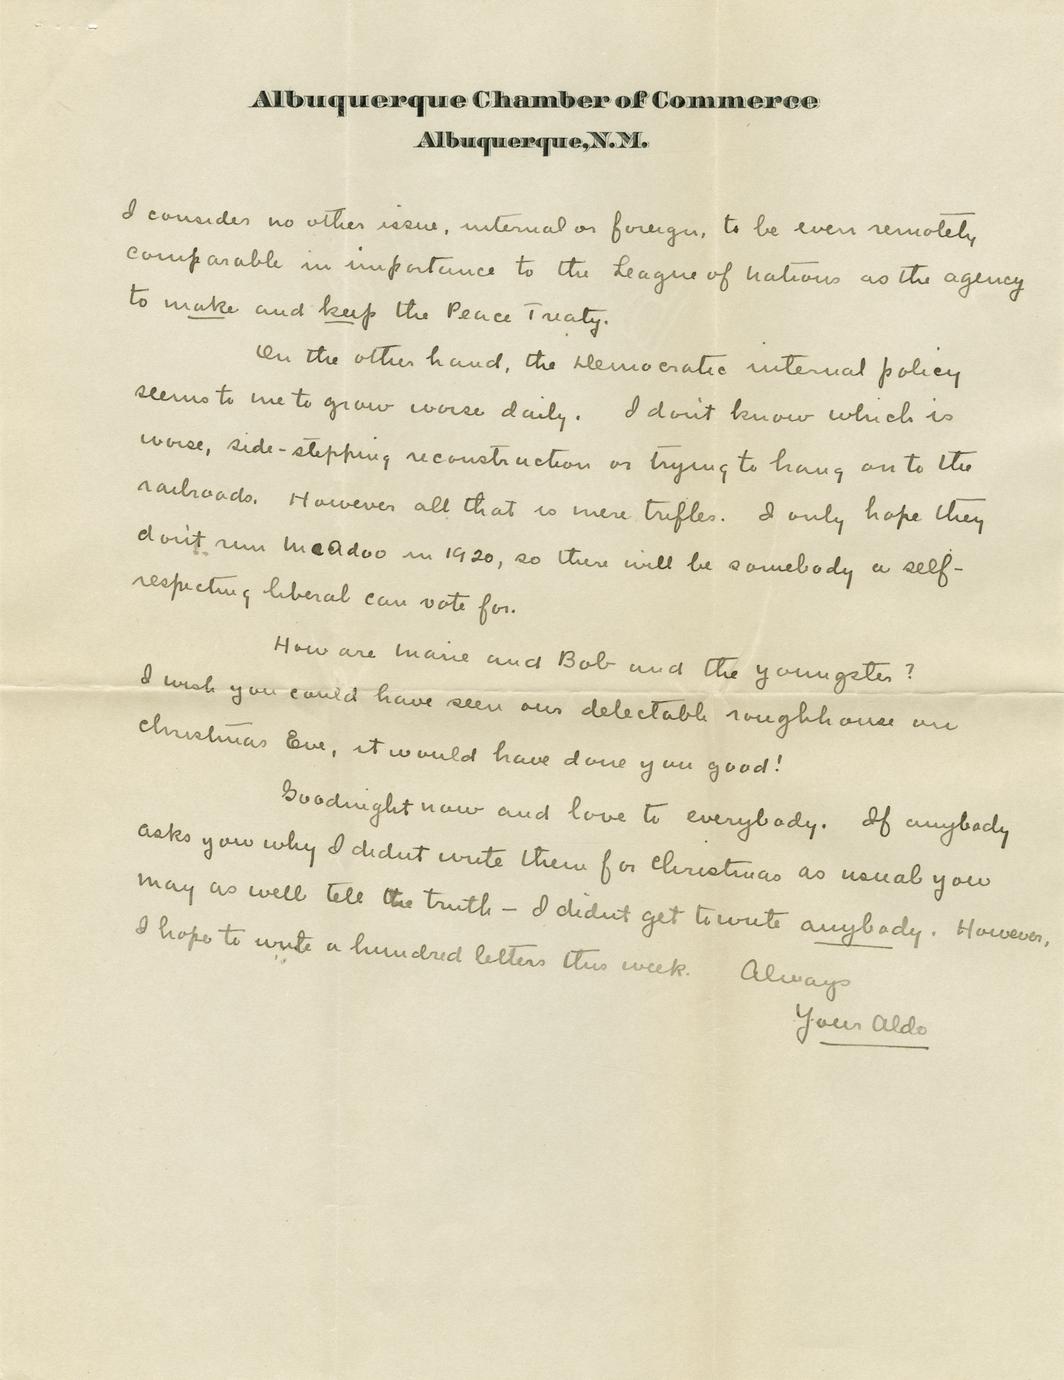 Albuquerque Chamber of Commerce
Albuquerque, N.M.
I consider no other issue, internal or foreign, to be even remotely
comparable in importance to the League of Nations as the agency
to make and keep the Peace Treaty.
On the other hand, the Democratic internal policy
seems to me to grow worse daily. I don't know which is
worse, side-stepping reconstruction or trying to hang on to the
railroads. However all that is mere trifles. I only hope they
don't run McAdoo in 1920, so there will be somebody a self-
respecting liberal can vote for.
How are Marie and Bob and the youngster?
I wish you could have seen our delectable roughhouse on
Christmas Eve, it would have done you good!
Goodnight now and love to everybody. If anybody
asks you why I didnt write them for Christmas as usual you
may as well tell the truth – I didnt get to write anybody. However,
I hope to write a hundred letters this week. Always
Your Aldo